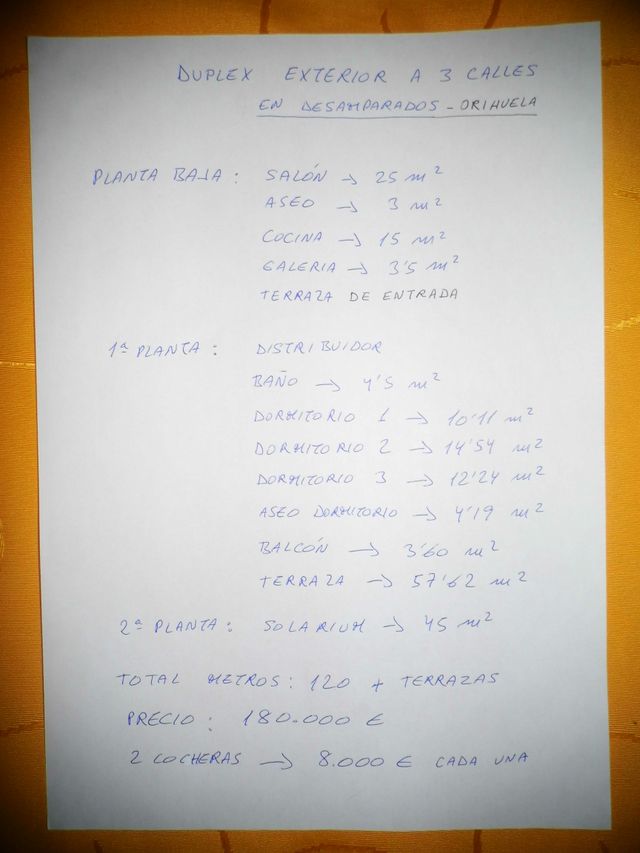 DUPLEX EXTERIOR A 3 CALLES
EN DESAMPARADOS - ORIHUELA
PLANTA BAJA : SALÓN → 25 m²
ASEO → 3 m²
COCINA → 15 m²
GALERIA → 3'5 m²
TERRAZA DE ENTRADA
1ª PLANTA : DISTRIBUIDOR
BAÑO → 4'5 m²
DORMITORIO 1 → 10'11 m²
DORMITORIO 2 → 14'54 m²
DORMITORIO 3 → 12'24 m²
ASEO DORMITORIO → 4'19 m²
BALCÓN → 3'60 m²
TERRAZA → 57'62 m²
2ª PLANTA : SOLARIUM → 45 m²
TOTAL METROS : 120 + TERRAZAS
PRECIO : 180.000 €
2 COCHERAS → 8.000 € CADA UNA